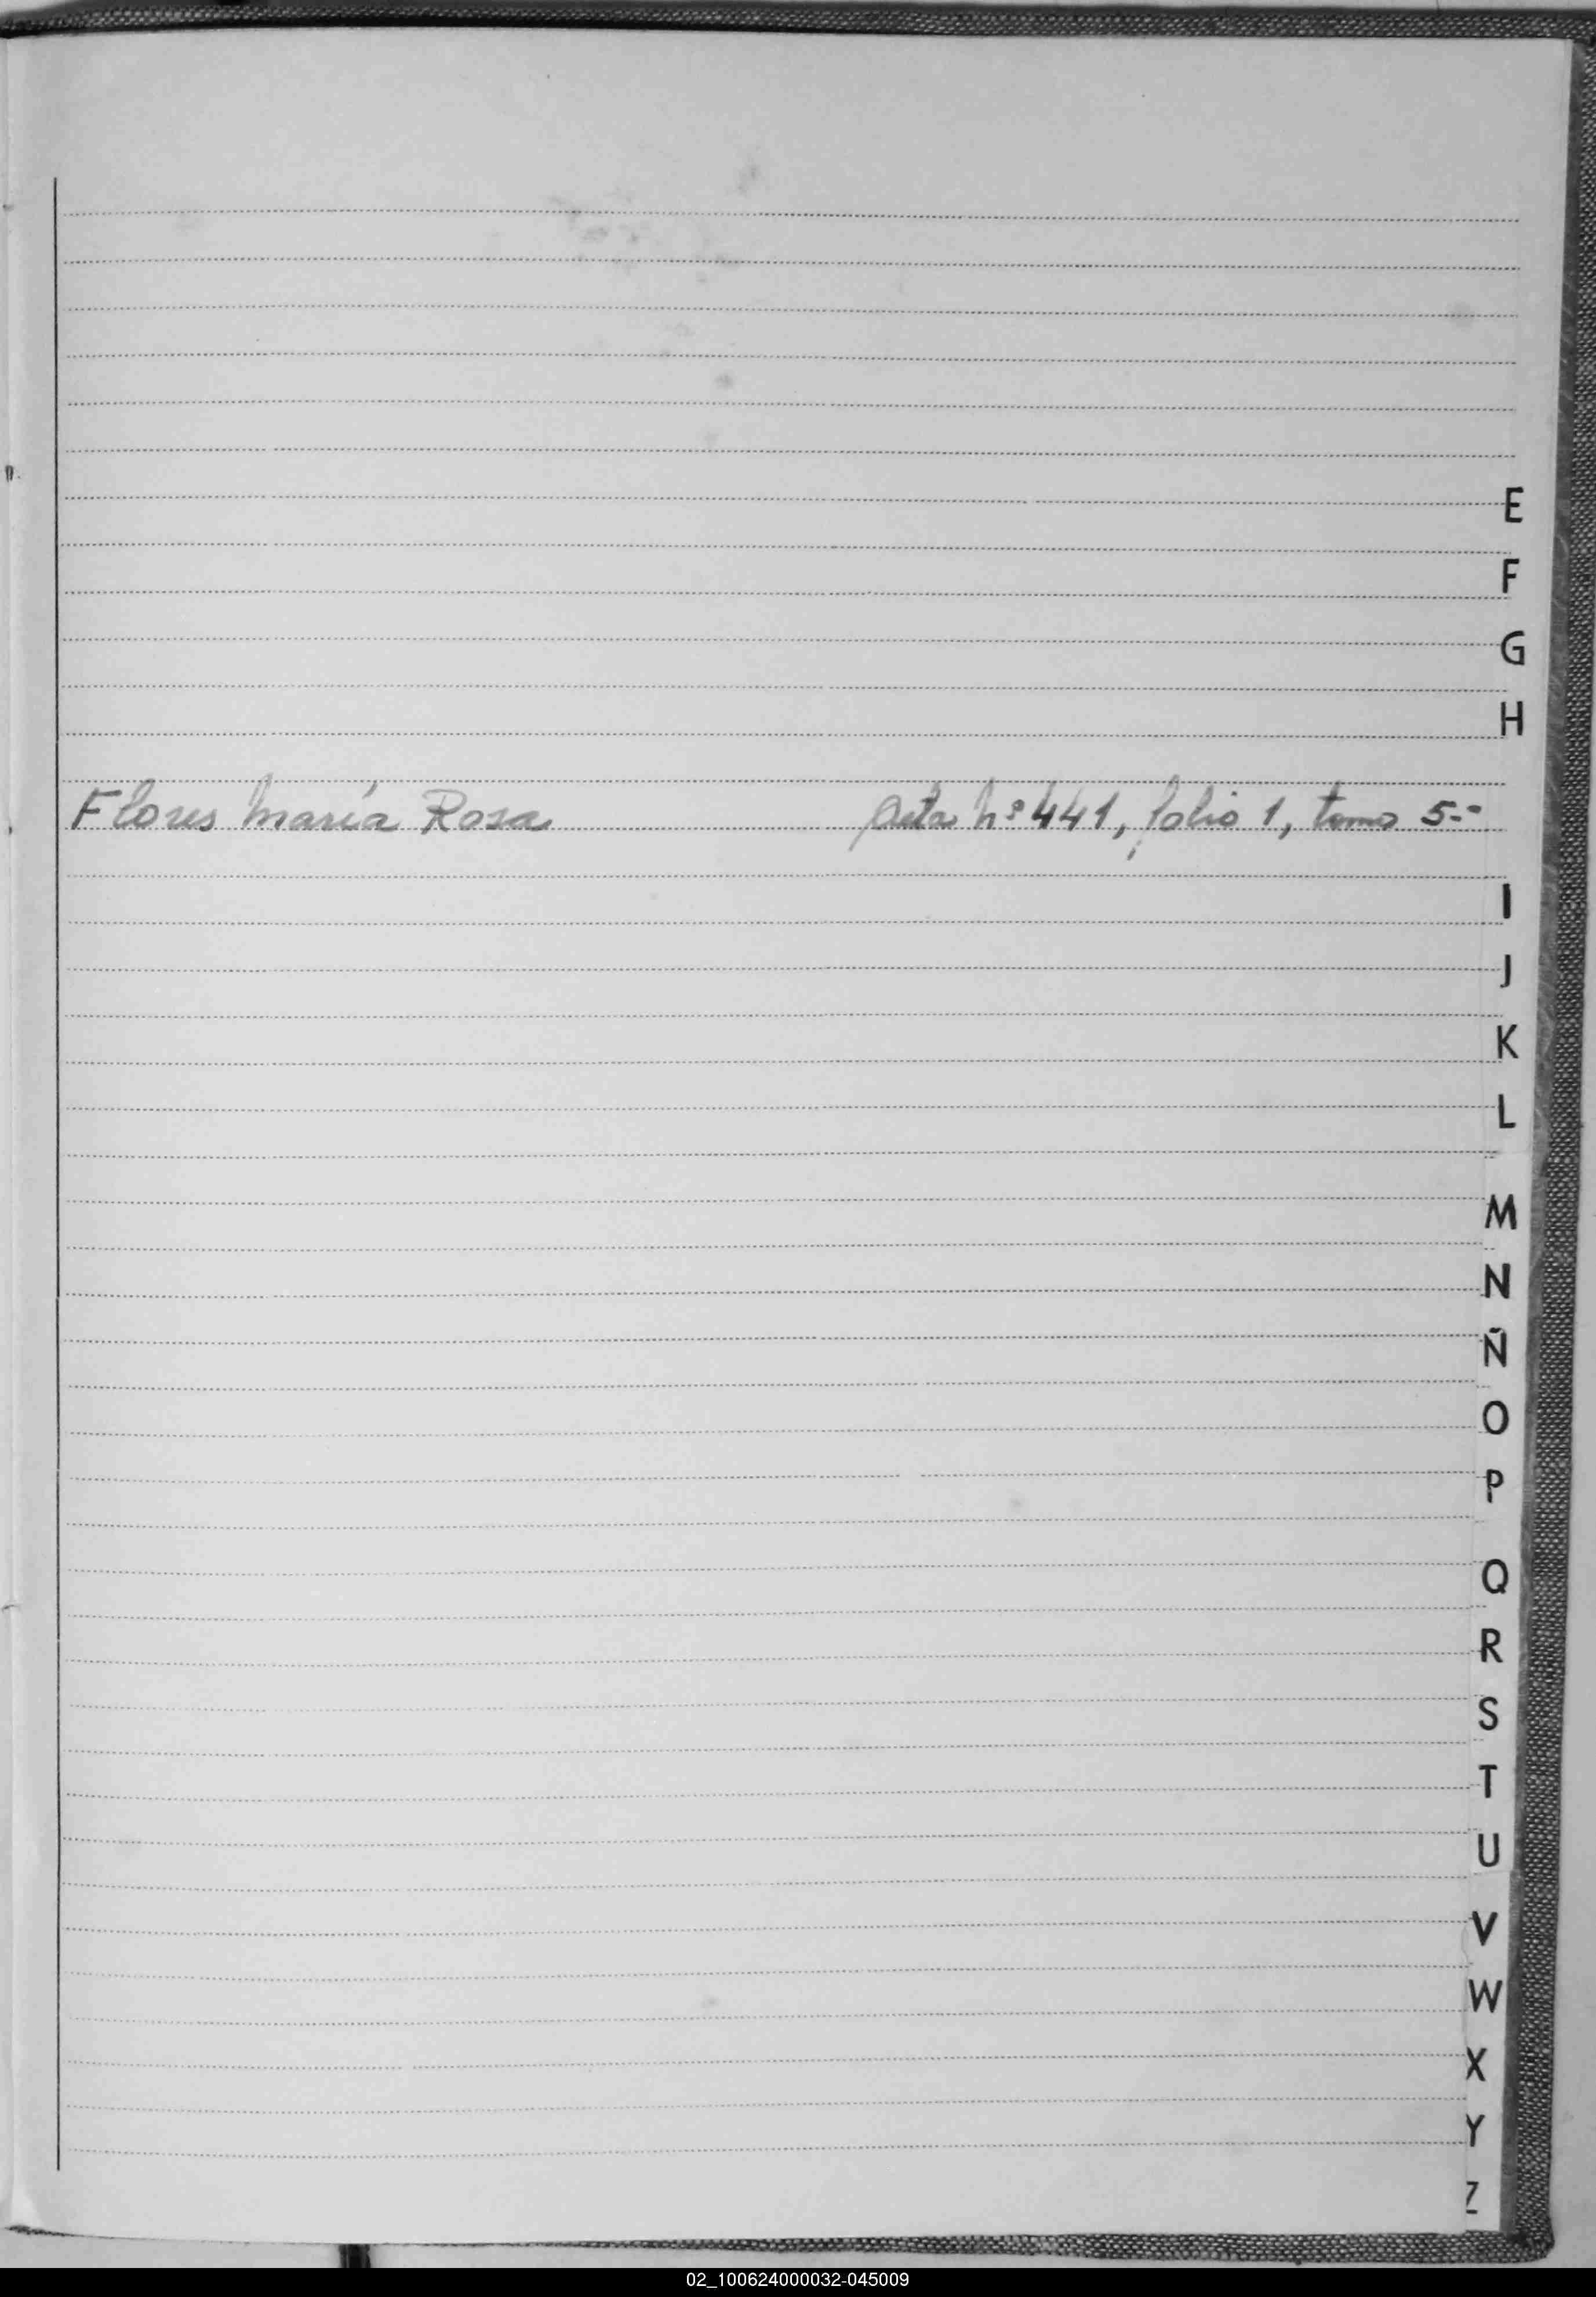 E
F
G
H
Flores María Rosa Acta Nº 441, folio 1, tomo 5.-
I
J
K
L
M
N
Ñ
O
P
Q
R
S
T
U
V
W
X
Y
Z
02_100624000032-045009